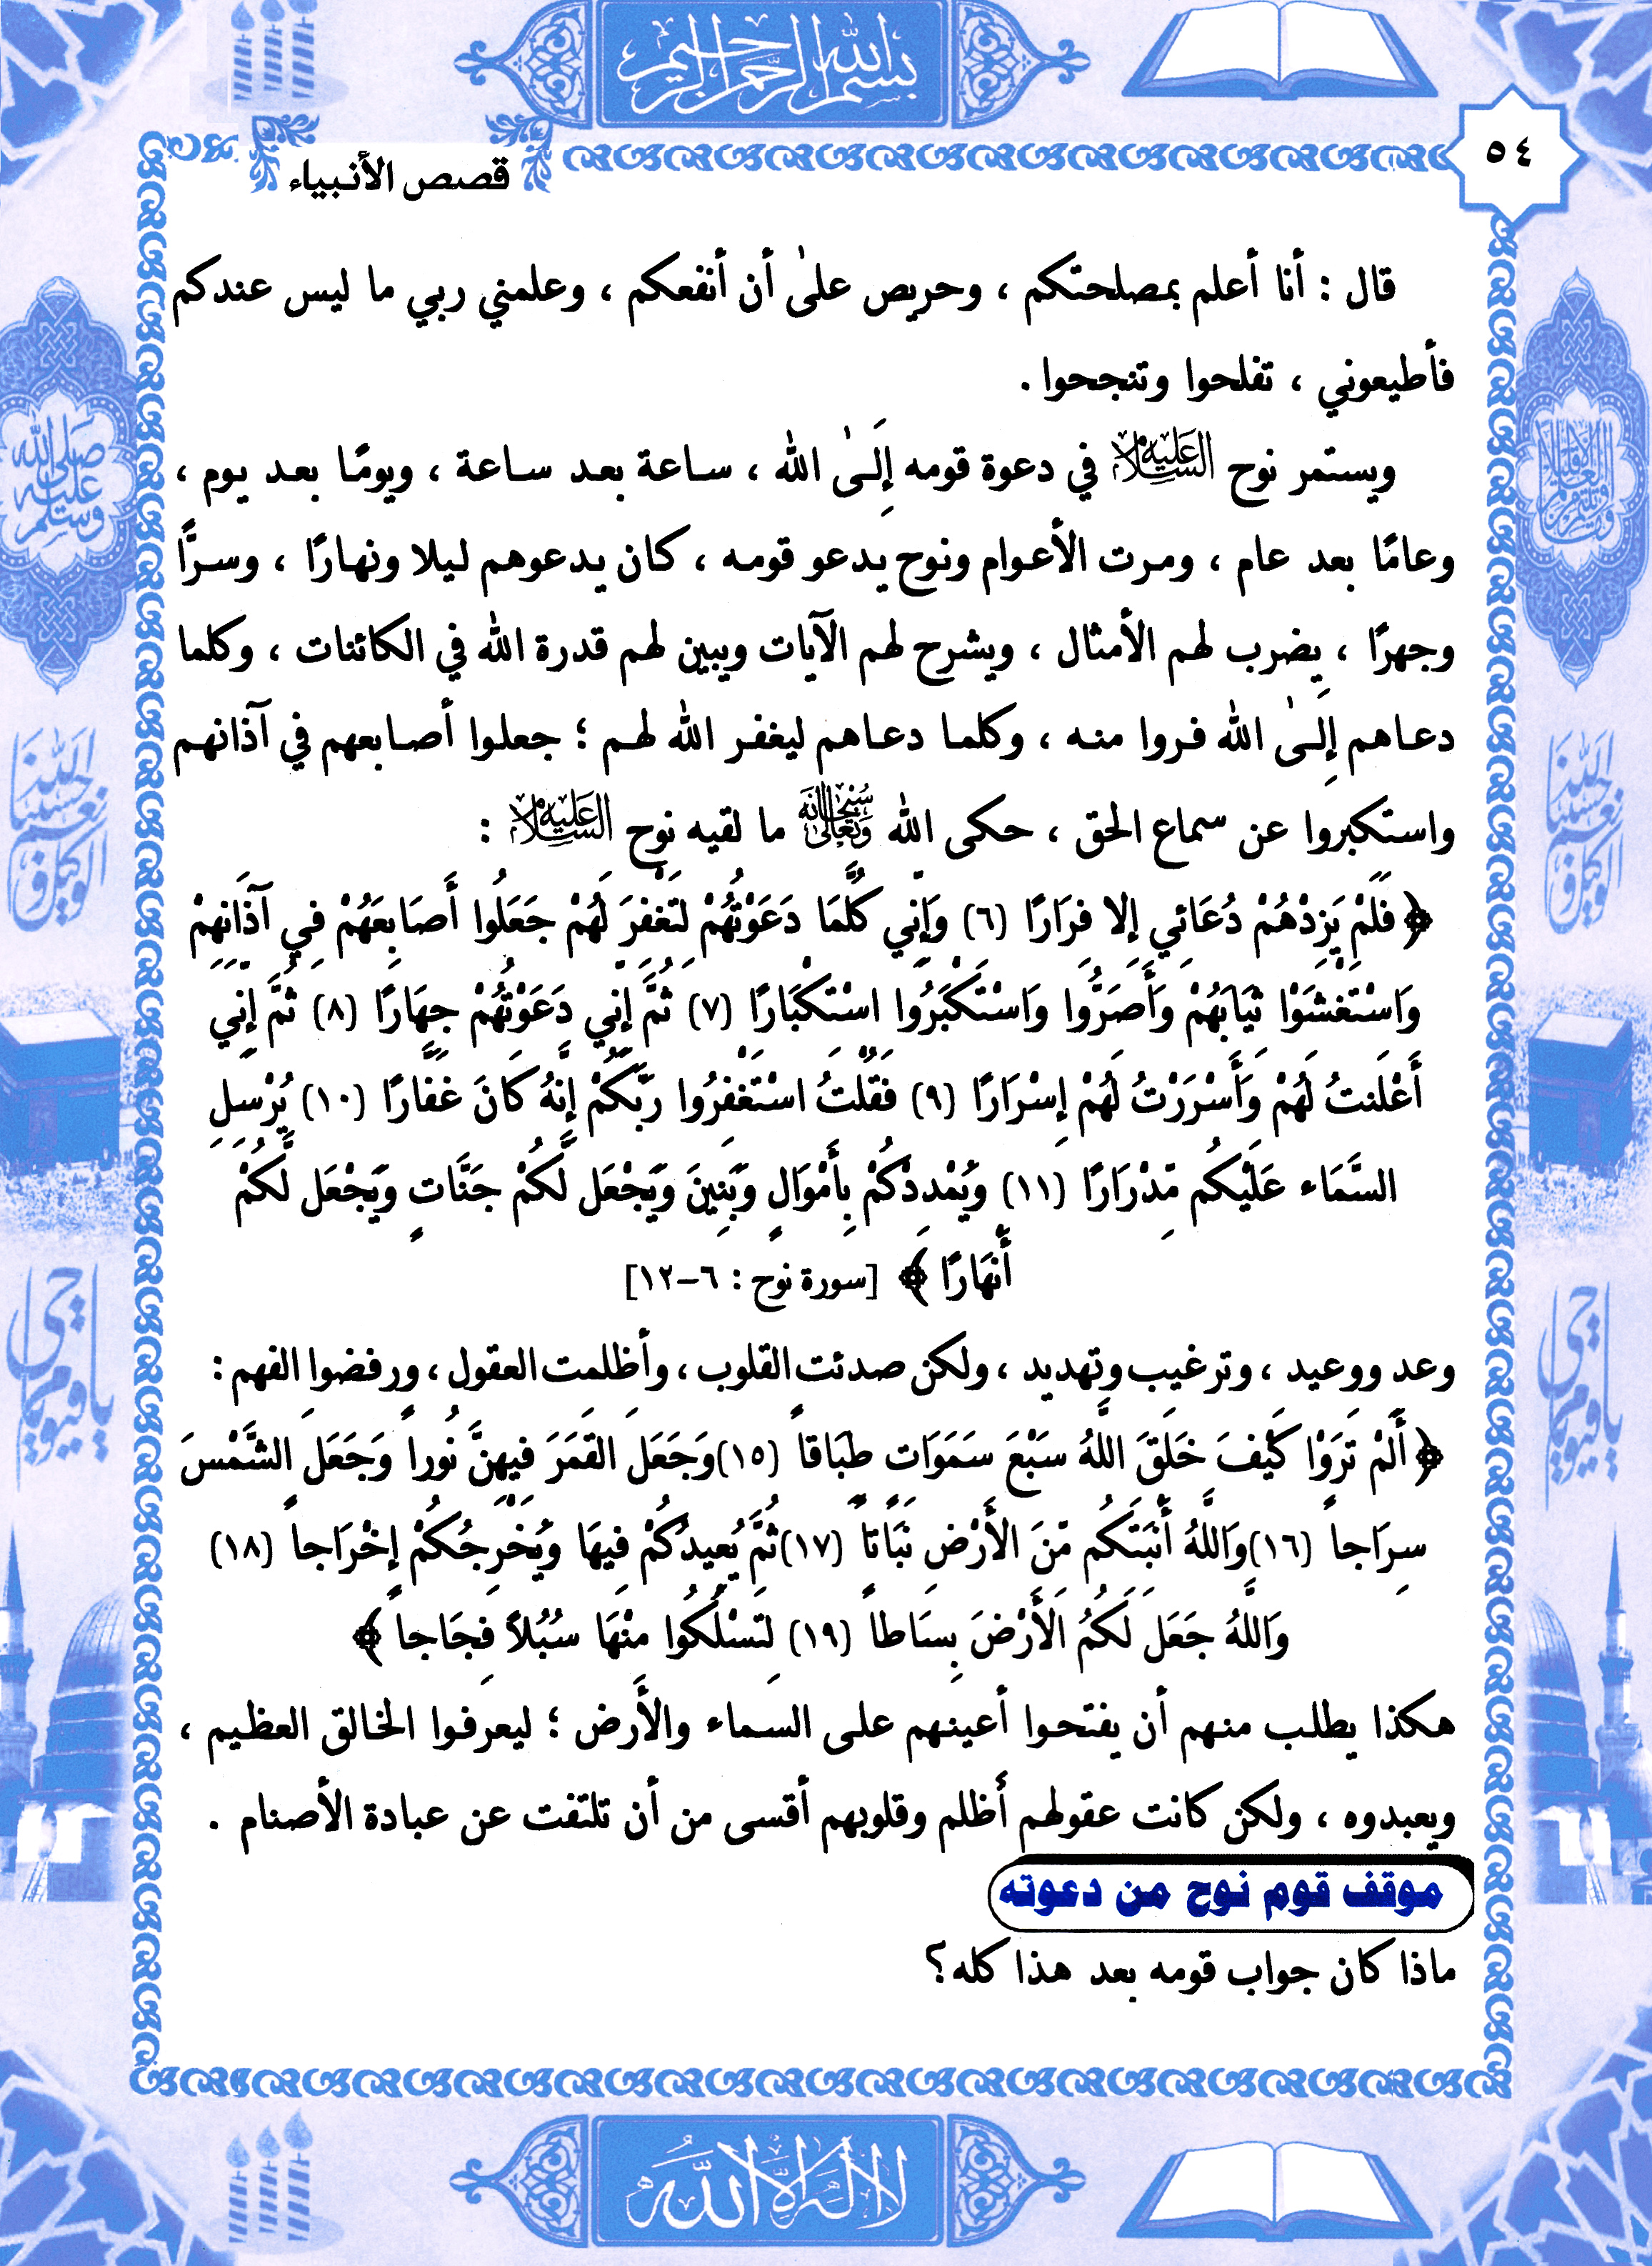 بسم الله الرحمن الرحيم
٥٤
قصص الأنبياء
قال : أنا أعلم بمصلحتكم ، وحريص علىٰ أن أنفعكم ، وعلمني ربي ما ليس عندكم
فأطيعوني ، تفلحوا وتنجحوا .
ويستمر نوح عليه السلام في دعوة قومه إِلَىٰ الله ، ساعة بعد ساعة ، ويومًا بعد يوم ،
وعامًا بعد عام ، ومرت الأعوام ونوح يدعو قومه ، كان يدعوهم ليلا ونهارًا ، وسرًّا
وجهرًا ، يضرب لهم الأمثال ، ويشرح لهم الآيات ويبين لهم قدرة الله في الكائنات ، وكلما
دعاهم إِلىٰ الله فروا منه ، وكلما دعاهم ليغفر الله لهم ؛ جعلوا أصابعهم في آذانهم
واستكبروا عن سماع الحق ، حكى الله سبحانه وتعالى ما لقيه نوح عليه السلام :
﴿ فَلَمْ يَزِدْهُمْ دُعَائِي إِلا فِرَارًا (٦) وَإِنِّي كُلَّمَا دَعَوْتُهُمْ لِتَغْفِرَ لَهُمْ جَعَلُوا أَصَابِعَهُمْ فِي آذَانِهِمْ
وَاسْتَغْشَوْا ثِيَابَهُمْ وَأَصَرُّوا وَاسْتَكْبَرُوا اسْتِكْبَارًا (٧) ثُمَّ إِنِّي دَعَوْتُهُمْ جِهَارًا (٨) ثُمَّ إِنِّي
أَعْلَنتُ لَهُمْ وَأَسْرَرْتُ لَهُمْ إِسْرَارًا (٩) فَقُلْتُ اسْتَغْفِرُوا رَبَّكُمْ إِنَّهُ كَانَ غَفَّارًا (١٠) يُرْسِلِ
السَّمَاء عَلَيْكُم مِّدْرَارًا (١١) وَيُمْدِدْكُمْ بِأَمْوَالٍ وَبَنِينَ وَيَجْعَل لَّكُمْ جَنَّاتٍ وَيَجْعَل لَّكُمْ
أَنْهَارًا ﴾ [سورة نوح : ٦-١٢]
وعد ووعيد ، وترغيب وتهديد ، ولكن صدئت القلوب ، وأظلمت العقول ، ورفضوا الفهم :
﴿ أَلَمْ تَرَوْا كَيْفَ خَلَقَ اللَّهُ سَبْعَ سَمَوَاتٍ طِبَاقاً (١٥) وَجَعَلَ القَمَرَ فِيهِنَّ نُوراً وَجَعَلَ الشَّمْسَ
سِرَاجاً (١٦) وَاللَّهُ أَنْبَتَكُم مِّنَ الأَرْضِ نَبَاتاً (١٧) ثُمَّ يُعِيدُكُمْ فِيهَا وَيُخْرِجُكُمْ إِخْرَاجاً (١٨)
وَاللَّهُ جَعَلَ لَكُمُ الأَرْضَ بِسَاطاً (١٩) لِتَسْلُكُوا مِنْهَا سُبُلاً فِجَاجاً ﴾
هكذا يطلب منهم أن يفتحوا أعينهم على السماء والأرض ؛ ليعرفوا الخالق العظيم ،
ويعبدوه ، ولكن كانت عقولهم أظلم وقلوبهم أقسى من أن تلتفت عن عبادة الأصنام .
موقف قوم نوح من دعوته
ماذا كان جواب قومه بعد هذا كله؟
لا إله إلا الله
صلى الله عليه وسلم
حسبنا الله ونعم الوكيل
حسبنا الله ونعم الوكيل
يا حي يا قيوم
يا حي يا قيوم